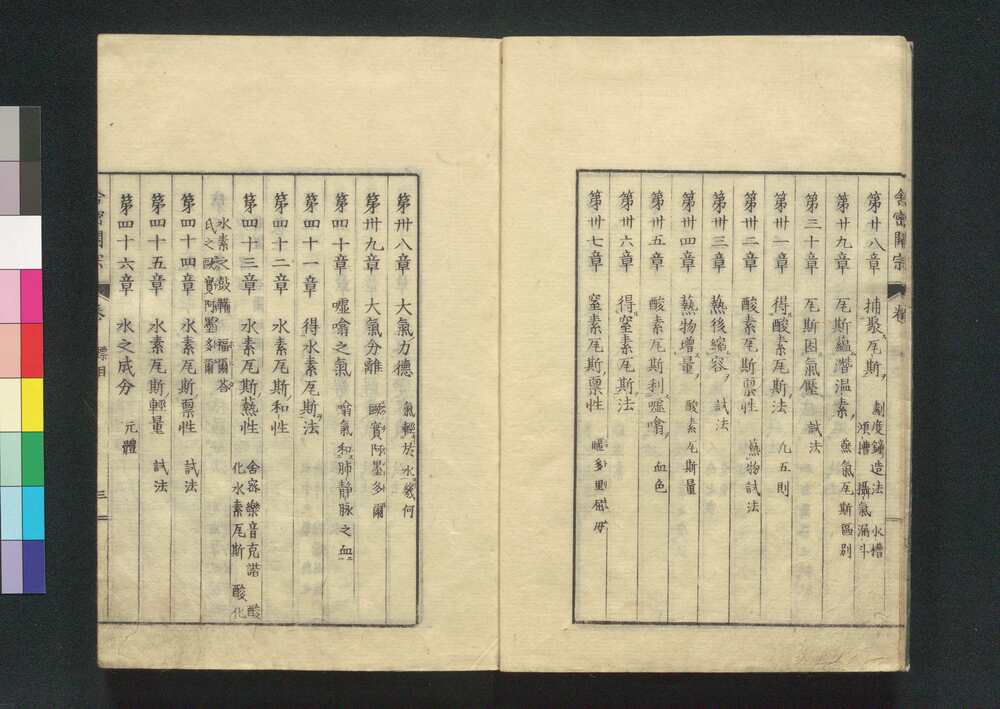 舍密開宗 卷
第廿八章 捕聚瓦斯 劃度鐘造法 水槽 汞槽 攝氣漏斗
第廿九章 瓦斯縕潛温素 蒸氣瓦斯區別
第三十章 瓦斯因氣壓 試法
第卅一章 得酸素瓦斯法 九五則
第卅二章 酸素瓦斯稟性 爇物試法
第卅三章 爇後縮容 試法
第卅四章 爇物增量 酸素瓦斯量
第卅五章 酸素瓦斯利噓噏 血色
第卅六章 得窒素瓦斯法
第卅七章 窒素瓦斯稟性
第卅八章 大氣力德 氣輕於水幾何
第卅九章 大氣分離 歐實阿墨多爾
第四十章 噓噏之氣 噏氣和肺靜脉之血
第四十一章 得水素瓦斯法
第四十二章 水素瓦斯和性
第四十三章 水素瓦斯爇性 舍密樂音克諧 酸化水素瓦斯 酸化
水素之鼓鞴 福爾答氏之歐實阿墨多爾
第四十四章 水素瓦斯稟性 試法
第四十五章 水素瓦斯輕量 試法
第四十六章 水之成分 元體
舍密開宗 卷 標目 三